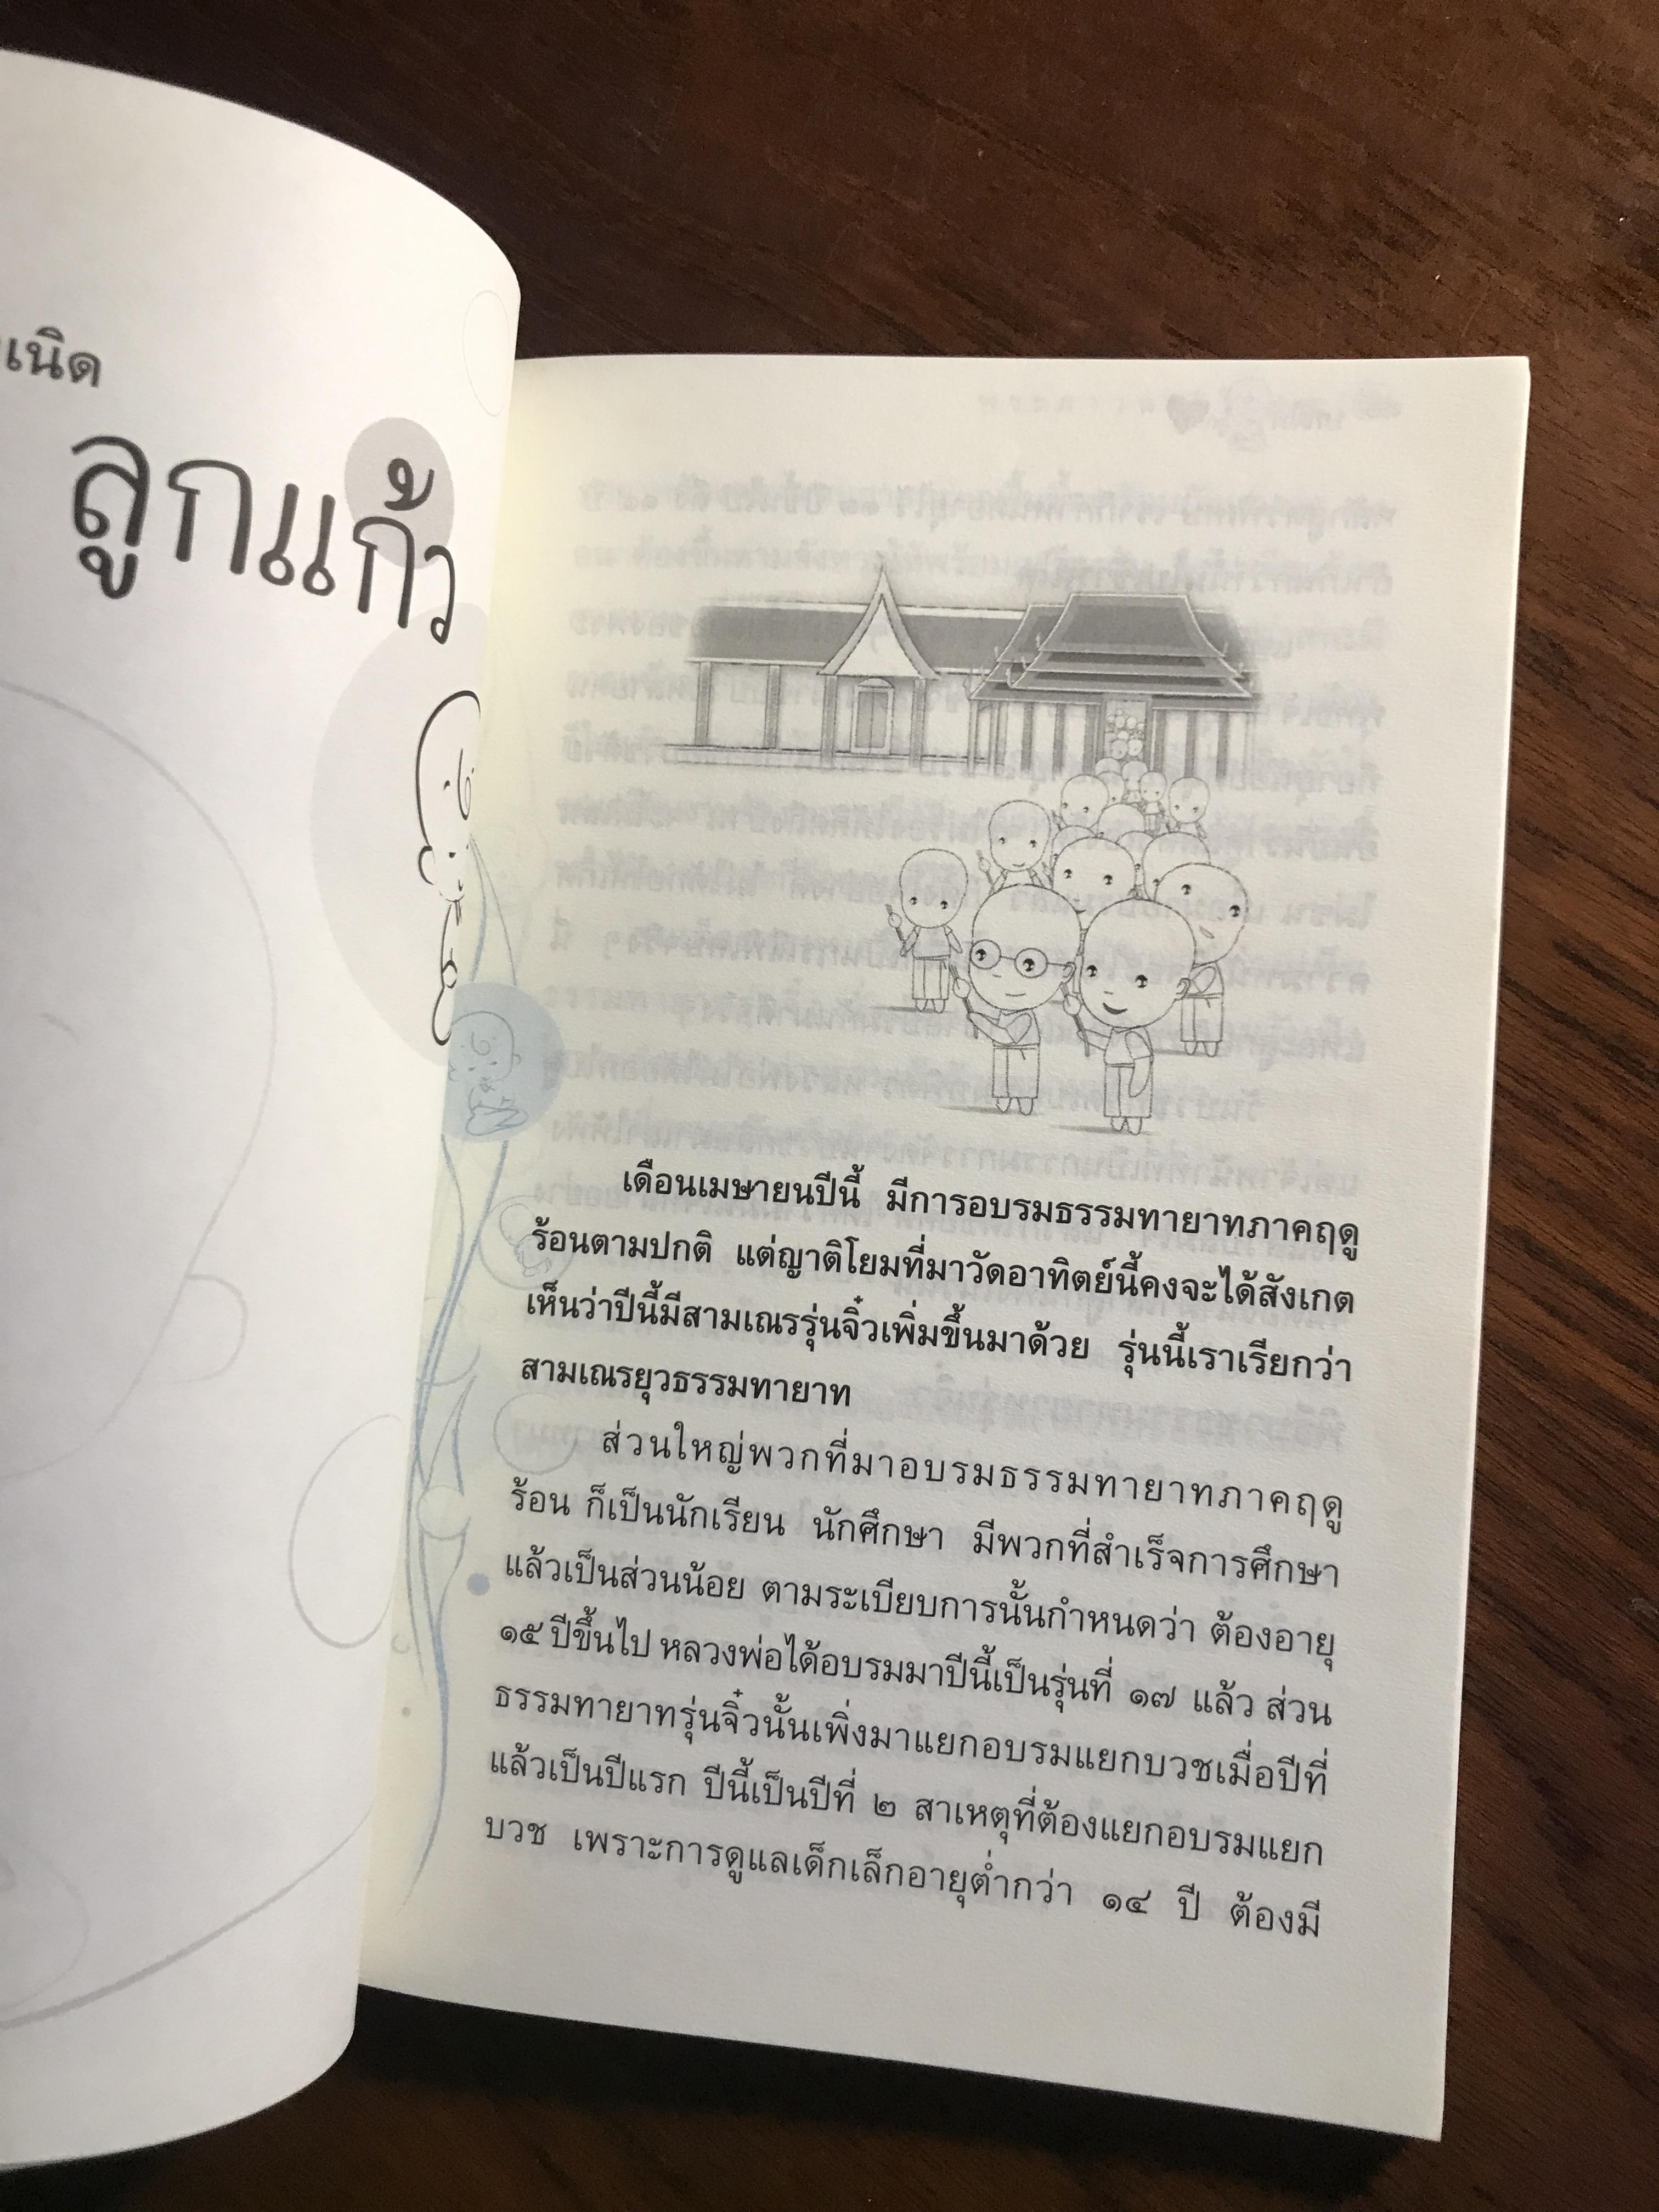 เนิด
ลูกแก้ว
เดือนเมษายนปีนี้ มีการอบรมธรรมทายาทภาคฤดู
ร้อนตามปกติ แต่ญาติโยมที่มาวัดอาทิตย์นี้คงจะได้สังเกต
เห็นว่าปีนี้มีสามเณรรุ่นจิ๋วเพิ่มขึ้นมาด้วย รุ่นนี้เราเรียกว่า
สามเณรยุวธรรมทายาท
ส่วนใหญ่พวกที่มาอบรมธรรมทายาทภาคฤดู
ร้อน ก็เป็นนักเรียน นักศึกษา มีพวกที่สำเร็จการศึกษา
แล้วเป็นส่วนน้อย ตามระเบียบการนั้นกำหนดว่า ต้องอายุ
๑๕ ปีขึ้นไป หลวงพ่อได้อบรมมาปีนี้เป็นรุ่นที่ ๑๗ แล้ว ส่วน
ธรรมทายาทรุ่นจิ๋วนั้นเพิ่งมาแยกอบรมแยกบวชเมื่อปีที่
แล้วเป็นปีแรก ปีนี้เป็นปีที่ ๒ สาเหตุที่ต้องแยกอบรมแยก
บวช เพราะการดูแลเด็กเล็กอายุต่ำกว่า ๑๔ ปี ต้องมี